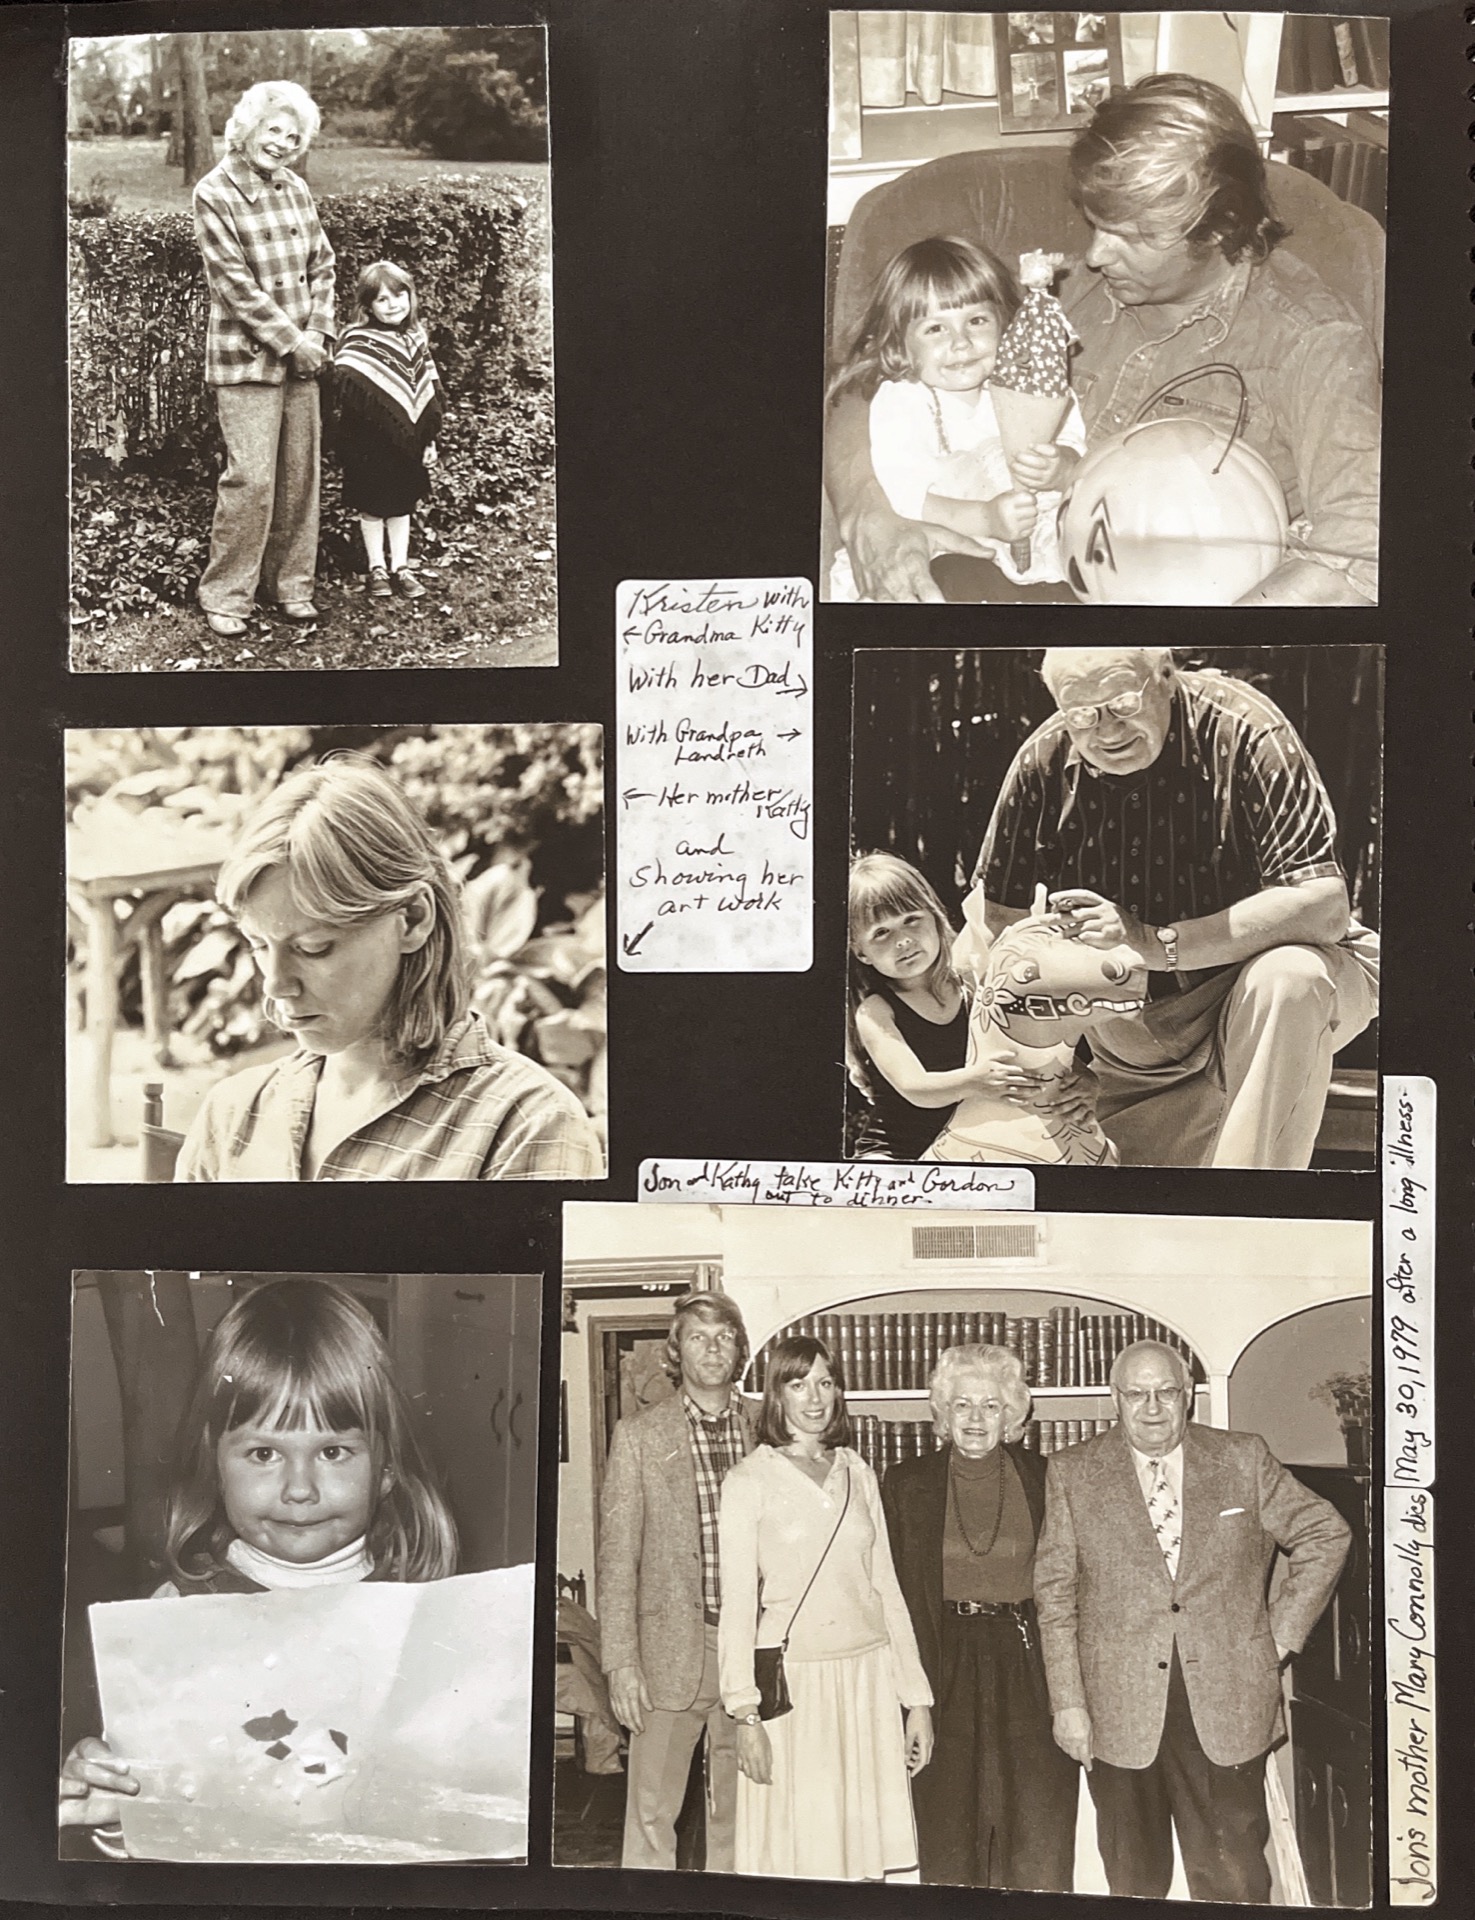 Kristen with
← Grandma Kitty
With her Dad →
With Grandpa →
Landreth
← Her mother
Kathy
and
Showing her
art work
↙
Jon and Kathy take Kitty and Gordon
out to dinner.
Jon's mother Mary Connolly dies May 30, 1979 after a long illness.